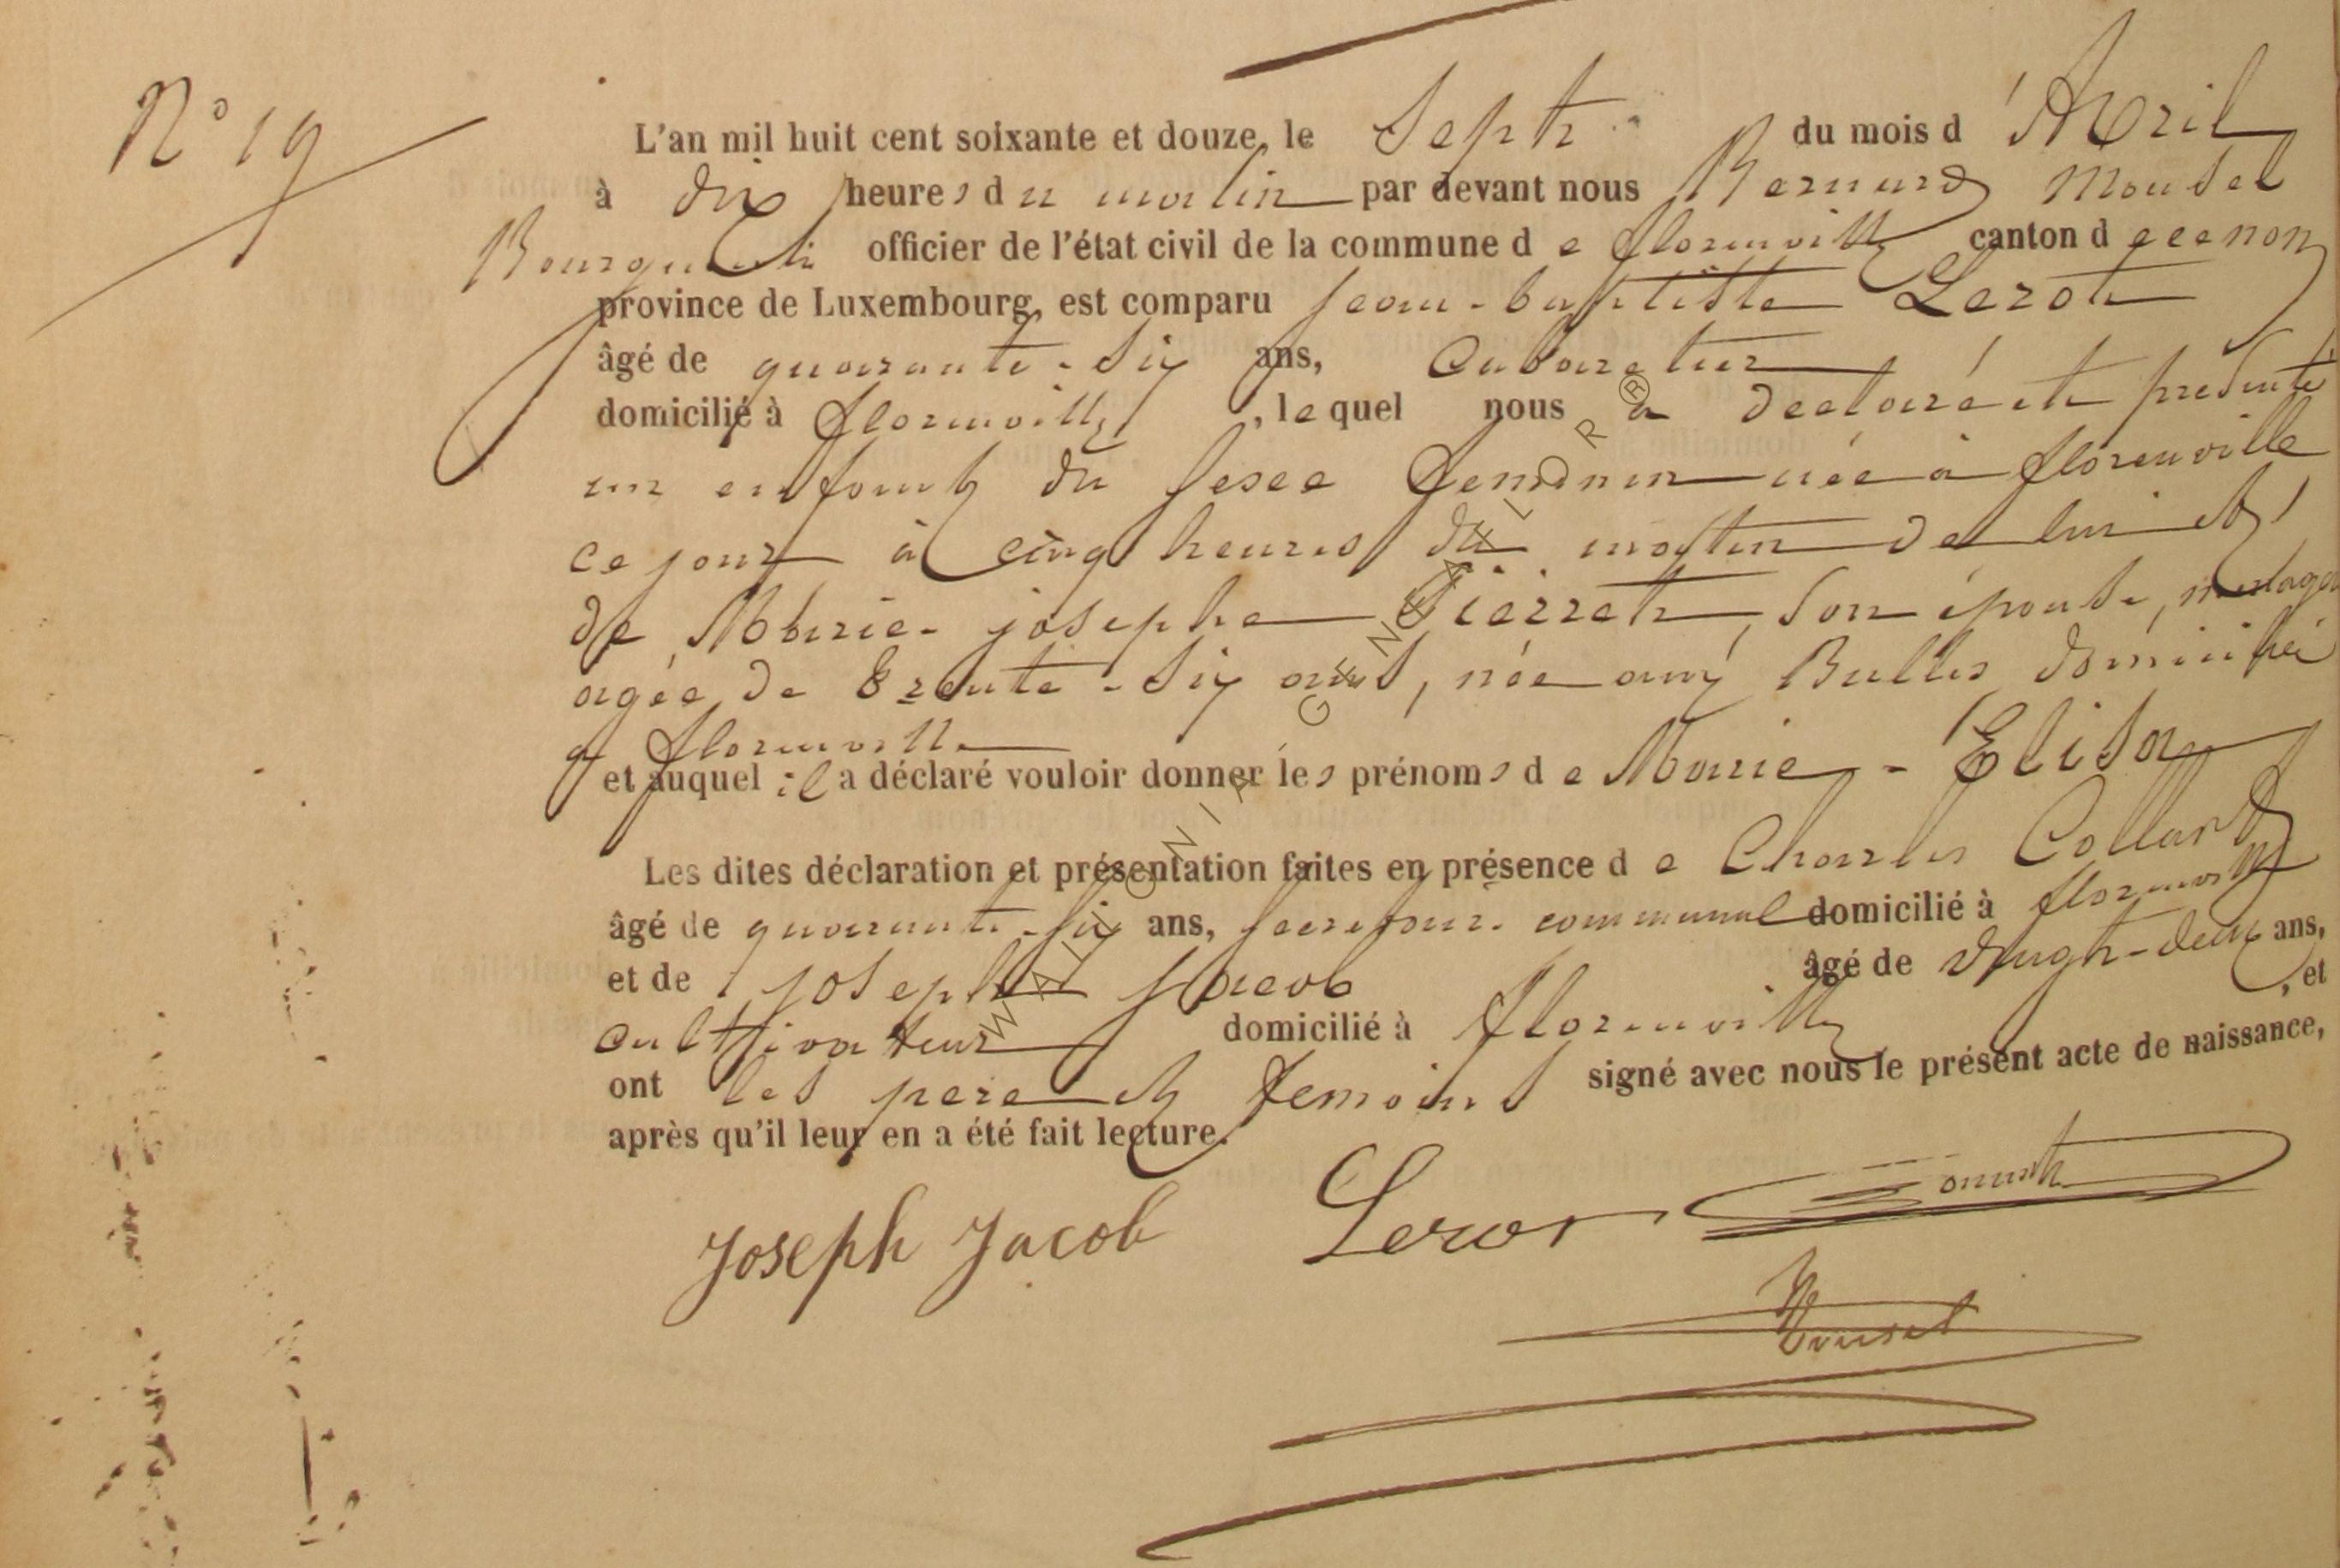 N° 19
L'an mil huit cent soixante et douze, le Sept du mois d'Avril
à dix heures du matin par devant nous Bernard Mousel
Bourgmestre officier de l'état civil de la commune de florenville canton de
province de Luxembourg, est comparu jean-baptiste Lerot
âgé de quarante-six ans, Cabaretier
domicilié à florenville, lequel nous a declaré et presenté
un enfant du sexe feminin née à florenville
ce jour à cinq heures du matin de lui et
de Marie-josephe Pierret, son épouse, menagère
agée de trente-six ans, née aux Bulles domiciliée
a florenville
et auquel il a déclaré vouloir donner les prénoms de Marie-Elisa
Les dites déclaration et présentation faites en présence de Charles Collard
âgé de quarante-six ans, secretaire communal domicilié à florenville
et de joseph jacob âgé de vingt-deux ans,
cultivateur domicilié à florenville, et
ont les pere et temoins signé avec nous le présent acte de naissance,
après qu'il leur en a été fait lecture.
Joseph Jacob Lerot
Mousel
WALLONIE GENEALOGIE R R ®